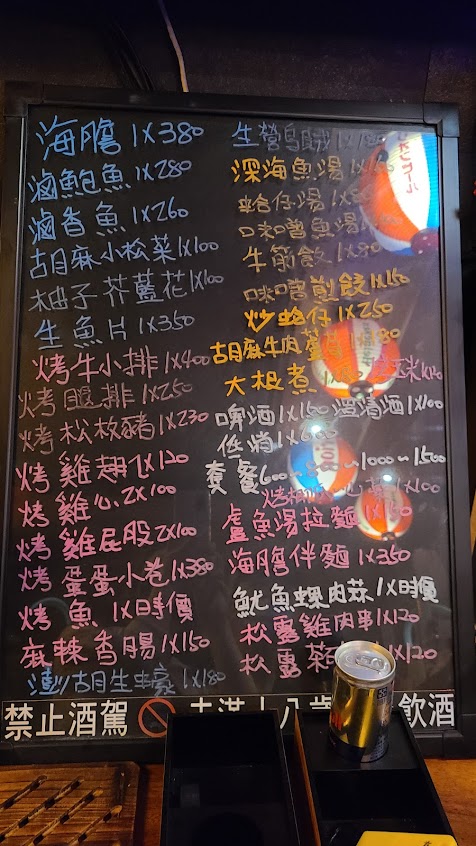 海膽 1X380
滷鮑魚 1X280
滷香魚 1X260
胡麻小松菜 1X100
柚子芥藍花 1X100
生魚片 1X350
烤牛小排 1X400
烤腿排 1X250
烤松板豬 1X230
烤雞翅飞 1X120
烤雞心 2X100
烤雞屁股 2X100
烤蛋蛋小卷 1X380
烤魚 1X時價
麻辣香腸 1X150
澎胡生蠔 1X180
生營烏賊 1X180
深海魚湯
蛤仔湯 1X80
味噌魚湯
牛筋餃 1X80
味噌煎餃 1X150
炒蛤仔 1X250
胡麻牛肉
大根煮
玉米
啤酒 1X150 澄清酒 1X100
低消
套餐 600~~~1000~1500
烤 1X100
鱸魚湯拉麵
海膽伴麵 1X350
魷魚螺肉蒜 1X時價
松露雞肉串 1X120
松露 1X120
禁止酒駕 飲酒